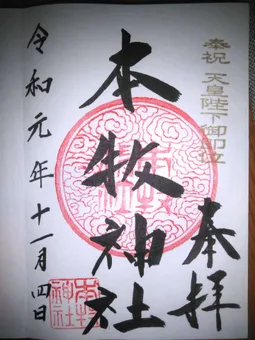 奉祝 天皇陛下御即位
奉拝
本牧神社
令和元年十一月四日
本牧神社